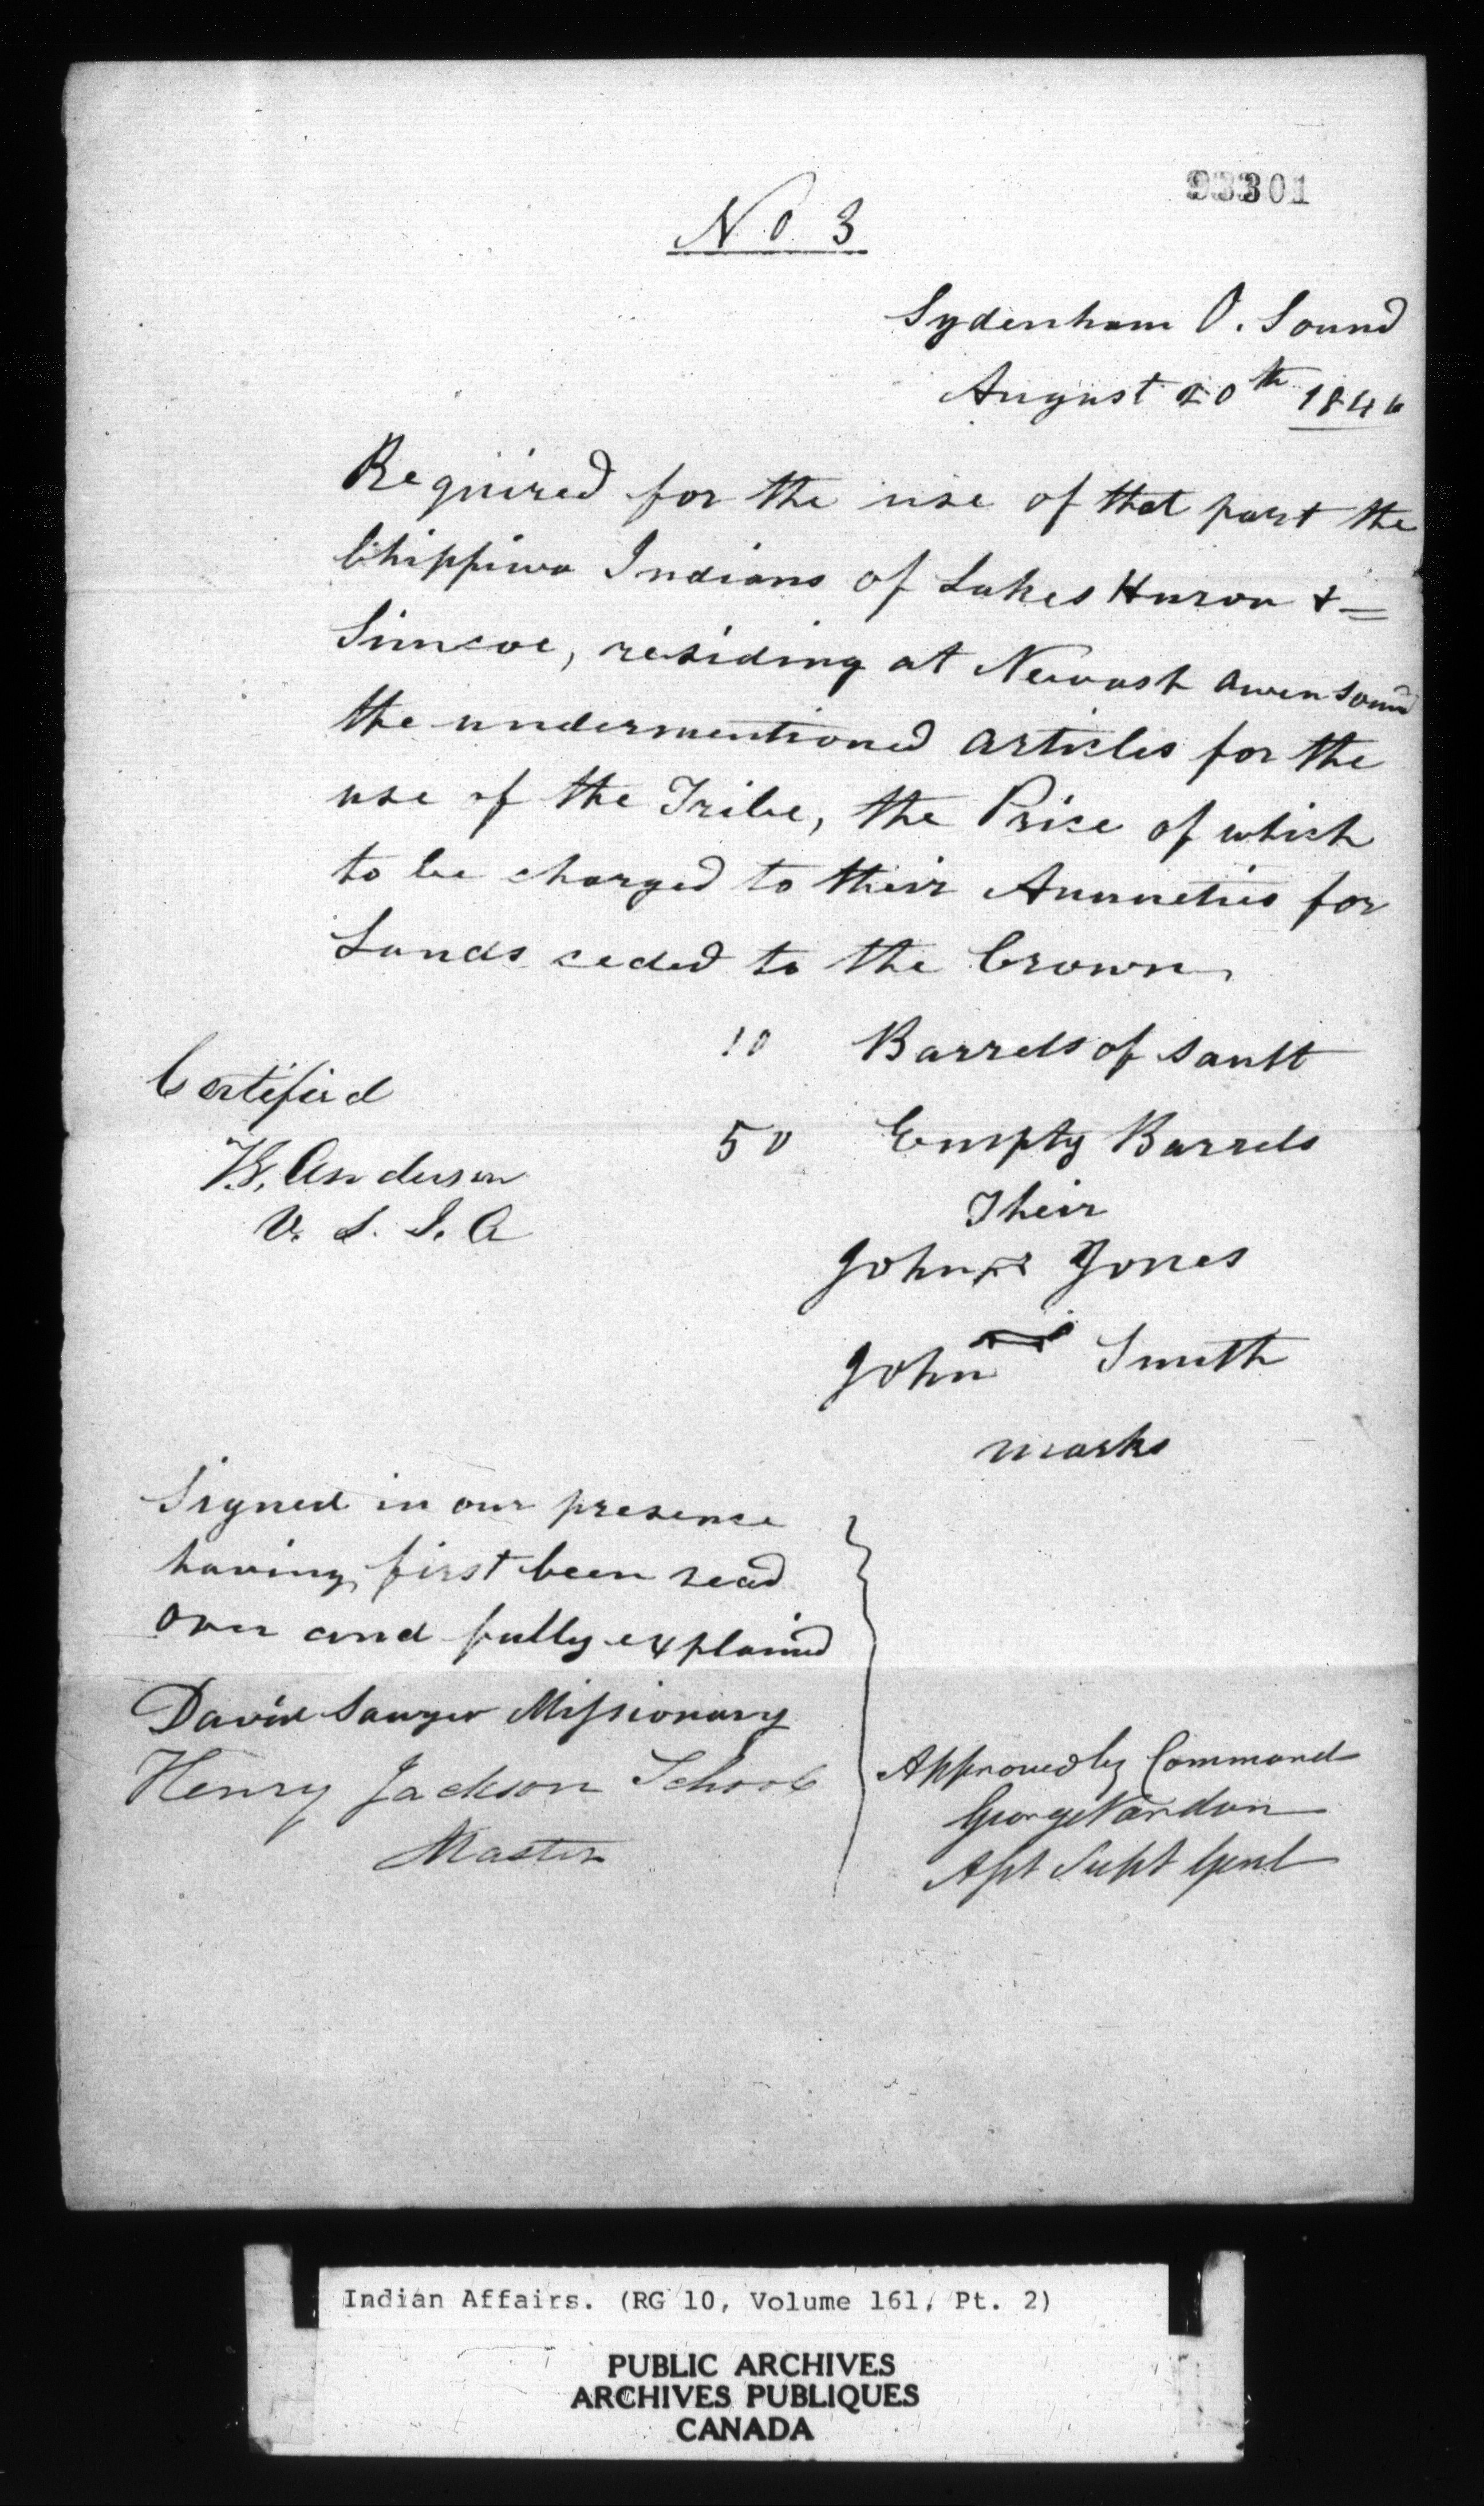 93301
No 3
Sydenham O. Sound
August 20th 1846
Required for the use of that part the
Chippiwa Indians of Lakes Huron & =
Simcoe, residing at Newash Owen Sound
the undermentioned articles for the
use of the Tribe, the Price of which
to be charged to their Annueties for
Lands ceded to the Crown
10 Barrels of Sault
50 Empty Barrels
Certified
Anderson
V. S. I. A
Their
John Jones
John Smith
marks
Signed in our presence
having first been read
over and fully explained
David Sawyer Missionary
Henry Jackson School
Master
Approved by Command
George Vardon
Asst Supt Genl
Indian Affairs. (RG 10, Volume 161, Pt. 2)
PUBLIC ARCHIVES
ARCHIVES PUBLIQUES
CANADA